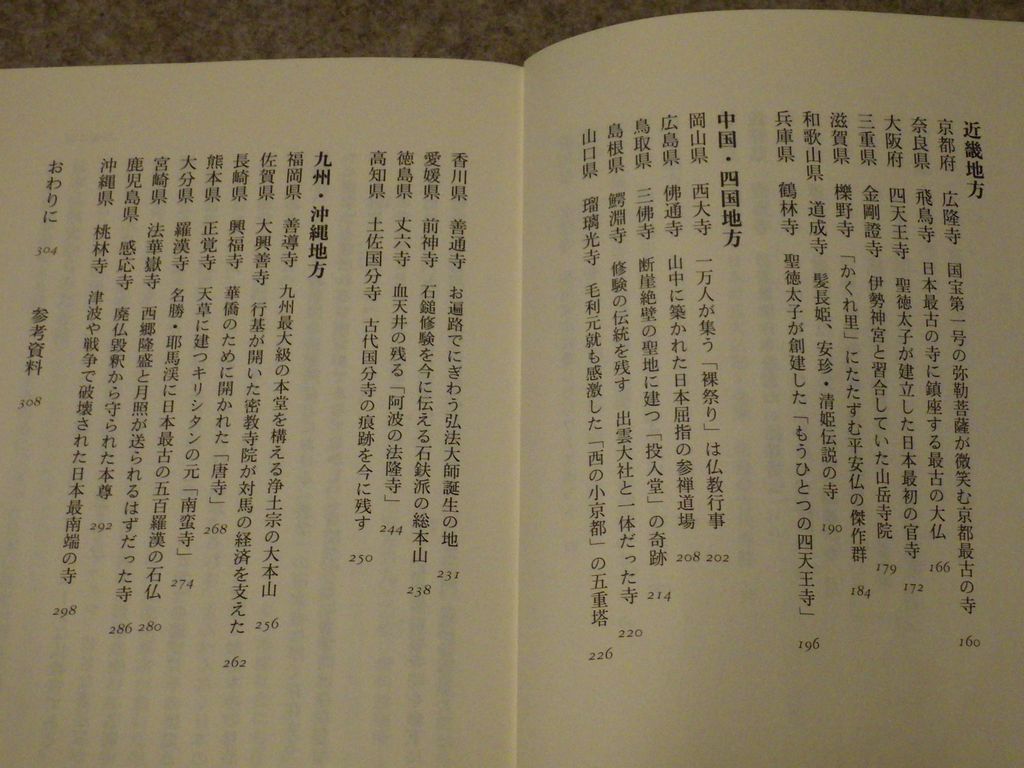 近畿地方
京都府　広隆寺　国宝第一号の弥勒菩薩が微笑む京都最古の寺　160
奈良県　飛鳥寺　日本最古の寺に鎮座する最古の大仏　166
大阪府　四天王寺　聖徳太子が建立した日本最初の官寺　172
三重県　金剛證寺　伊勢神宮と習合していた山岳寺院　179
滋賀県　櫟野寺　「かくれ里」にたたずむ平安仏の傑作群　184
和歌山県　道成寺　髪長姫、安珍・清姫伝説の寺　190
兵庫県　鶴林寺　聖徳太子が創建した「もうひとつの四天王寺」　196
中国・四国地方
岡山県　西大寺　一万人が集う「裸祭り」は仏教行事　202
広島県　佛通寺　山中に築かれた日本屈指の参禅道場　208
鳥取県　三佛寺　断崖絶壁の聖地に建つ「投入堂」の奇跡　214
島根県　鰐淵寺　修験の伝統を残す　出雲大社と一体だった寺　220
山口県　瑠璃光寺　毛利元就も感激した「西の小京都」の五重塔　226
香川県　善通寺　お遍路でにぎわう弘法大師誕生の地　231
愛媛県　前神寺　石鎚修験を今に伝える石鈇派の総本山　238
徳島県　丈六寺　血天井の残る「阿波の法隆寺」　244
高知県　土佐国分寺　古代国分寺の痕跡を今に残す　250
九州・沖縄地方
福岡県　善導寺　九州最大級の本堂を構える浄土宗の大本山　256
佐賀県　大興善寺　行基が開いた密教寺院が対馬の経済を支えた　262
長崎県　興福寺　華僑のために開かれた「唐寺」　268
熊本県　正覚寺　天草に建つキリシタンの元「南蛮寺」　274
大分県　羅漢寺　名勝・耶馬渓に日本最古の五百羅漢の石仏　280
宮崎県　法華嶽寺　西郷隆盛と月照が送られるはずだった寺　286
鹿児島県　感応寺　廃仏毀釈から守られた本尊　292
沖縄県　桃林寺　津波や戦争で破壊された日本最南端の寺　298
おわりに　304
参考資料　308